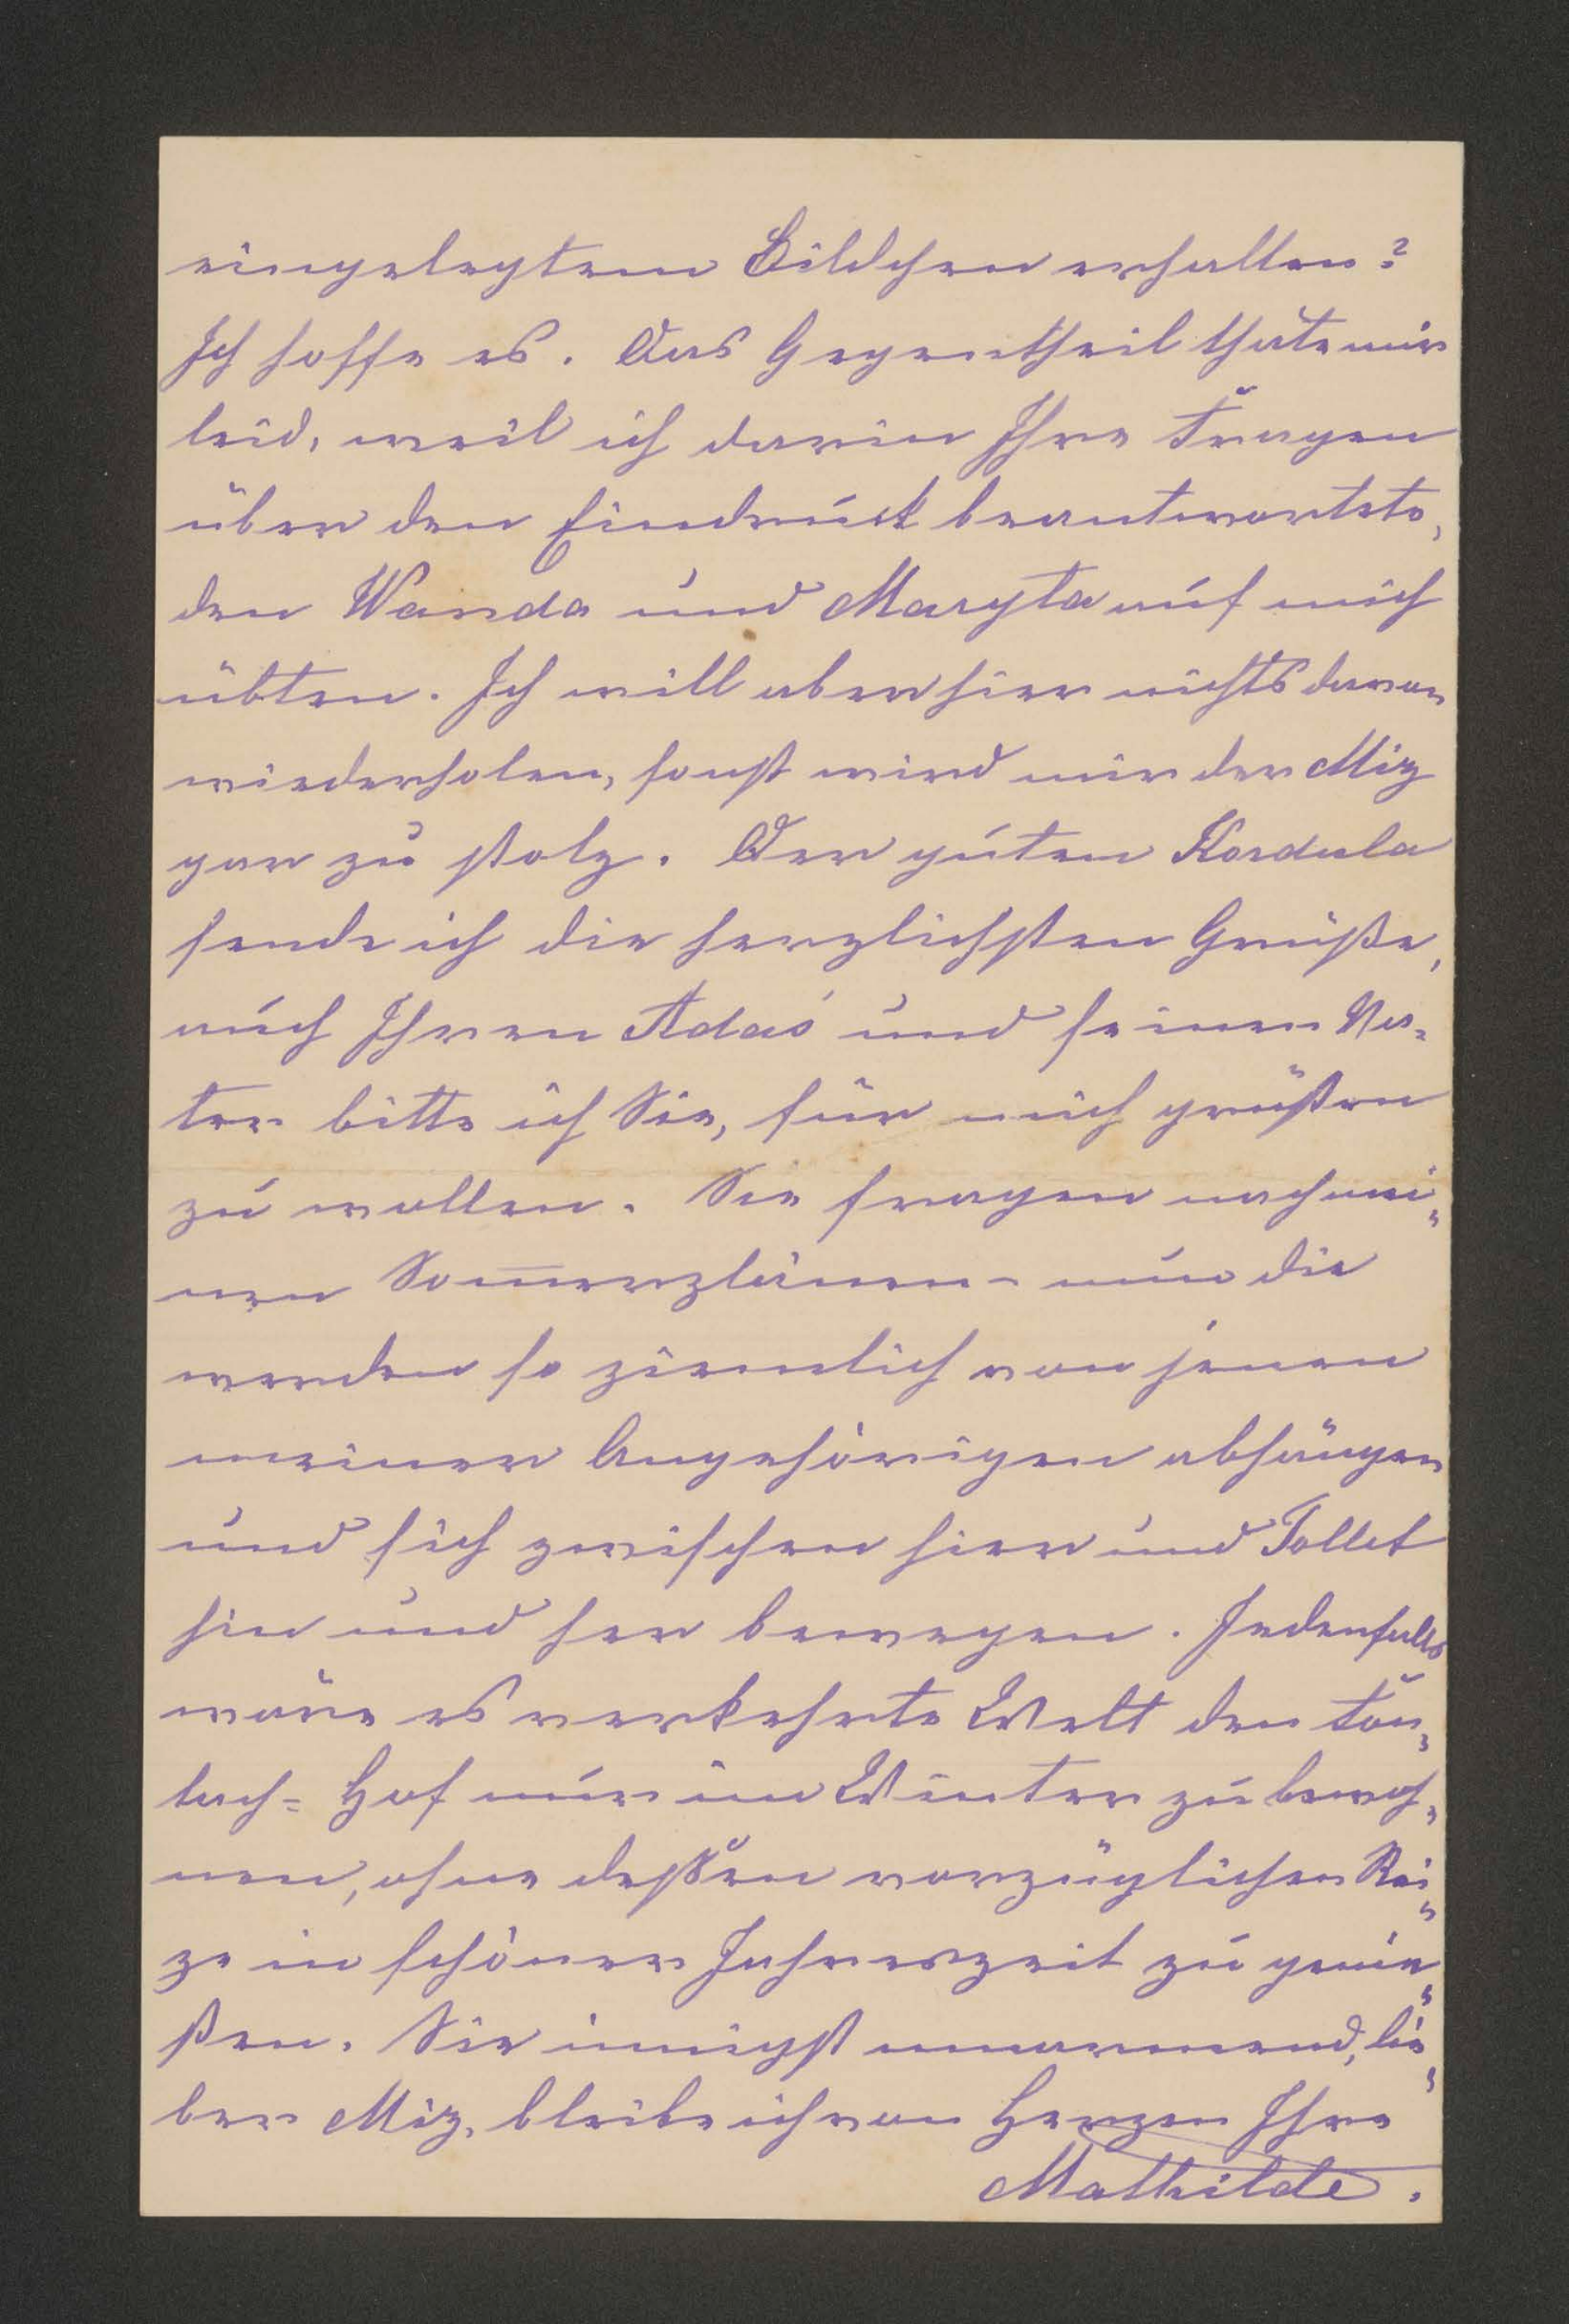 eingelegtem Bildchen erhalten?
Ich hoffe es. Das Gegentheil thäte mir
leid, weil ich darin Ihre Fragen
über den Eindruck beantwortete,
den Wanda und Maryta auf mich
übten. Ich will aber hier nichts davon
wiederholen, sonst wird mir der Miz
gar zu stolz. Der guten Kordula
sende ich die herzlichsten Grüße,
auch Ihren Adaś und seinen Va-
ter bitte ich Sie, für mich grüßen
zu wollen. Sie fragen nach mei-
nen Som̅erplänen – nun die
werden so ziemlich von jenen
meiner Angehörigen abhängen
und sich zwischen hier und Tollet
hin und her bewegen. Jedenfalls
wäre es verkehrte Welt den
Hof nur im Winter zu bewoh-
nen, ohne deßen vorzüglichen Rei-
ze in schöner Jahreszeit zu genie-
ßen. Sie innigst umarmend, lie-
ber Miz, bleibe ich von Herzen Ihre
Mathilde.